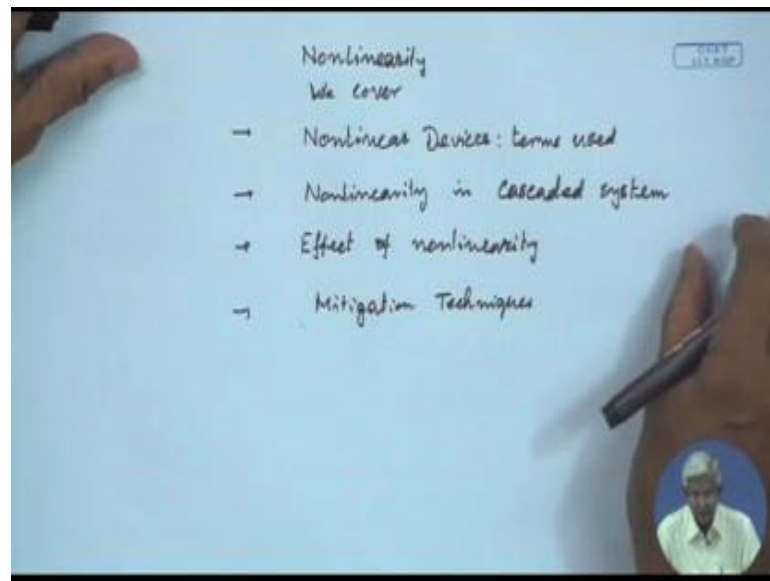 Nonlinearity
We cover
→ Nonlinear Devices: terms used
→ Nonlinearity in Cascaded system
→ Effect of nonlinearity
→ Mitigation Techniques